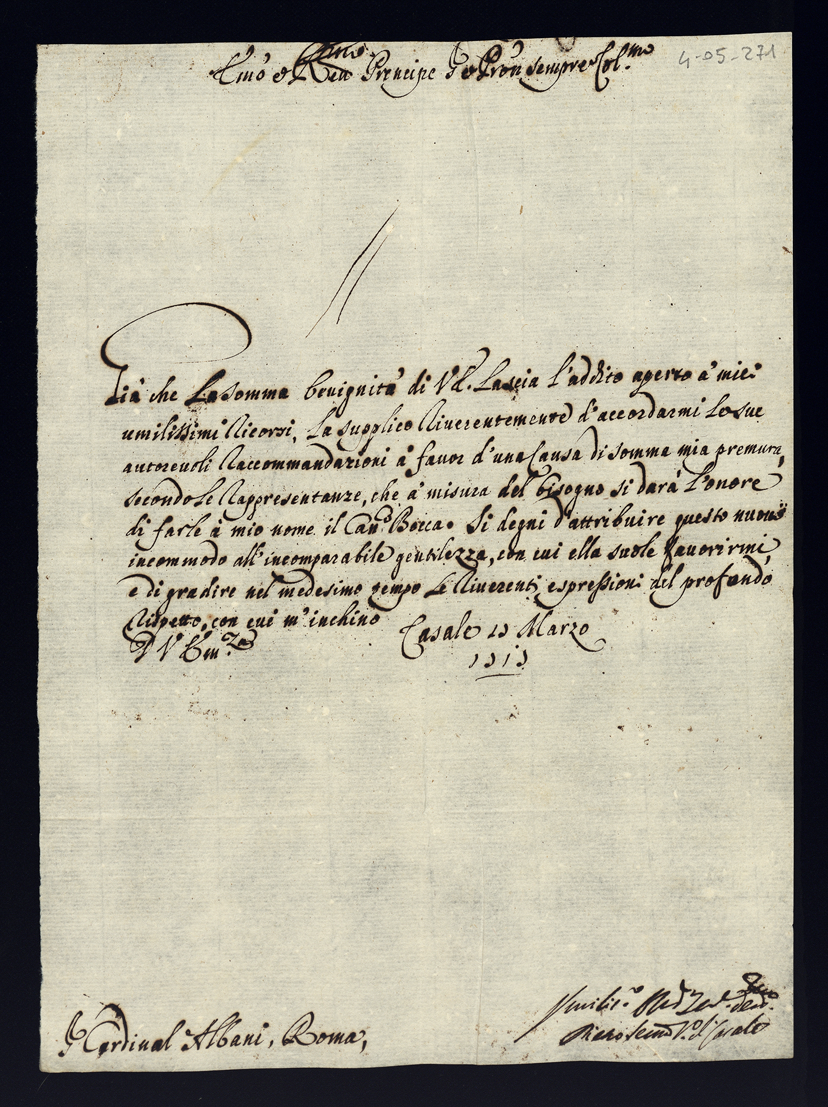 Emo e Rmo Principe Sig. e Pron sempre Col.mo
4-05-271
Già che La somma benignità di V.E. Lascia l'addito aperto à miei
umilissimi Ricorsi, La supplico Riverentemente d'accordarmi Le sue
autorevoli Raccommandazioni à favor d'una Causa di somma mia premura,
secondo Le Rappresentanze, che à misura del bisogno si darà L'onore
di farle à mio nome il Can.o Bocca. Si degni d'attribuire questo nuovo
incommodo all'incomparabile gentilezza, con cui ella suole favorirmi,
e di gradire nel medesimo tempo Le Riverenti espressioni del profondo
Rispetto, con cui m'inchino
D V Em.za
Casale Marzo
Cardinal Albani, Roma,
Umilis.o
di Casale